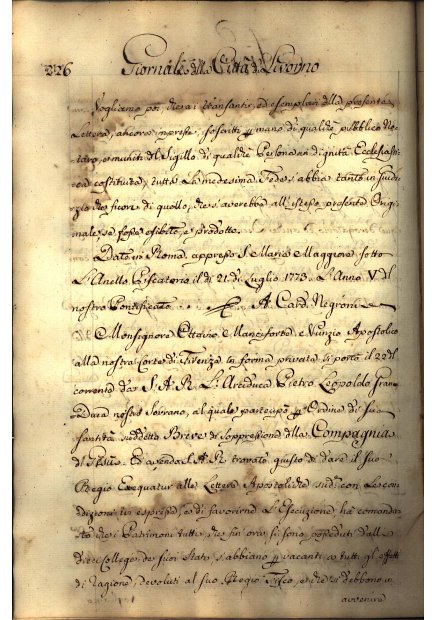 226 Giornale della Città di Livorno
Vogliamo poi che ai transunti, ed esemplari della presente
Lettera, ancora impressi, soscritti p mano di qualche pubblico No-
taro, e muniti del Sigillo di qualche Persona in dignità Ecclesiasti-
ca costituita, tutta la medesima Fede s'abbia tanto in giudi-
zio che fuori di quello, che s'averebbe all'istessa presente Origi-
nale, se fosse esibita, e prodotta.
Dato in Roma appresso S. Maria Maggiore sotto
L'Anello Piscatorio il di 21 di Luglio 1773. L'Anno V. del
nostro Pontificato. A. Card. Negroni
Monsignore Ottavio Mancforte Nunzio Apostolico
alla nostra Corte di Firenze in forma privata si portò il 22 del
corrente da S. A. R. L'Arciduca Pietro Leopoldo Gran-
Duca nostro Sovrano, al quale partecipò p Ordine di sua
santità suddetto Breve di Soppressione della Compagnia
di Ed avendo S. A. R. trovato giusto di dare il suo
Regio Exequatur alle Lettere Apostoliche sud. con le con-
dizioni ivi espresse, e di favorirne L'Esecuzione, ha comanda-
to che i Patrimoni tutti, che fin ora si sono posseduti dall
dieci Collegi de suoi Stati, s'abbiano p vacanti, e tutti gl'effetti
di Ragione, devoluti al suo Regio Fisco, e che si debbono in
avvenire